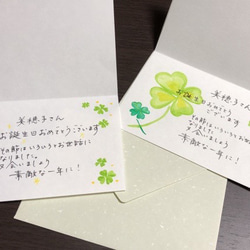 美穂子さん
お誕生日おめでとうございます
その節はいろいろとお世話に
なりました。
又会いましょう
素敵な一年に！
美穂子さん
お誕生日おめでとう
ございます
その節はいろいろとお世話に
なりました。
又会いましょう
素敵な一年に！